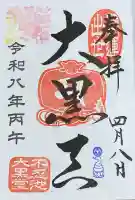 奉拝
四月八日
大黒天
令和八年丙午
不忍池
大黒堂